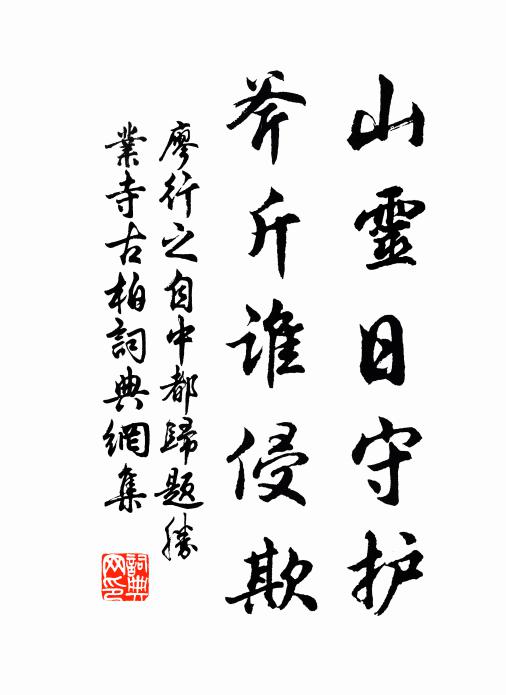 山靈日守护
斧斤谁侵欺
廖行之自中都歸題勝
業寺古柏詞典網集
詞典
网印